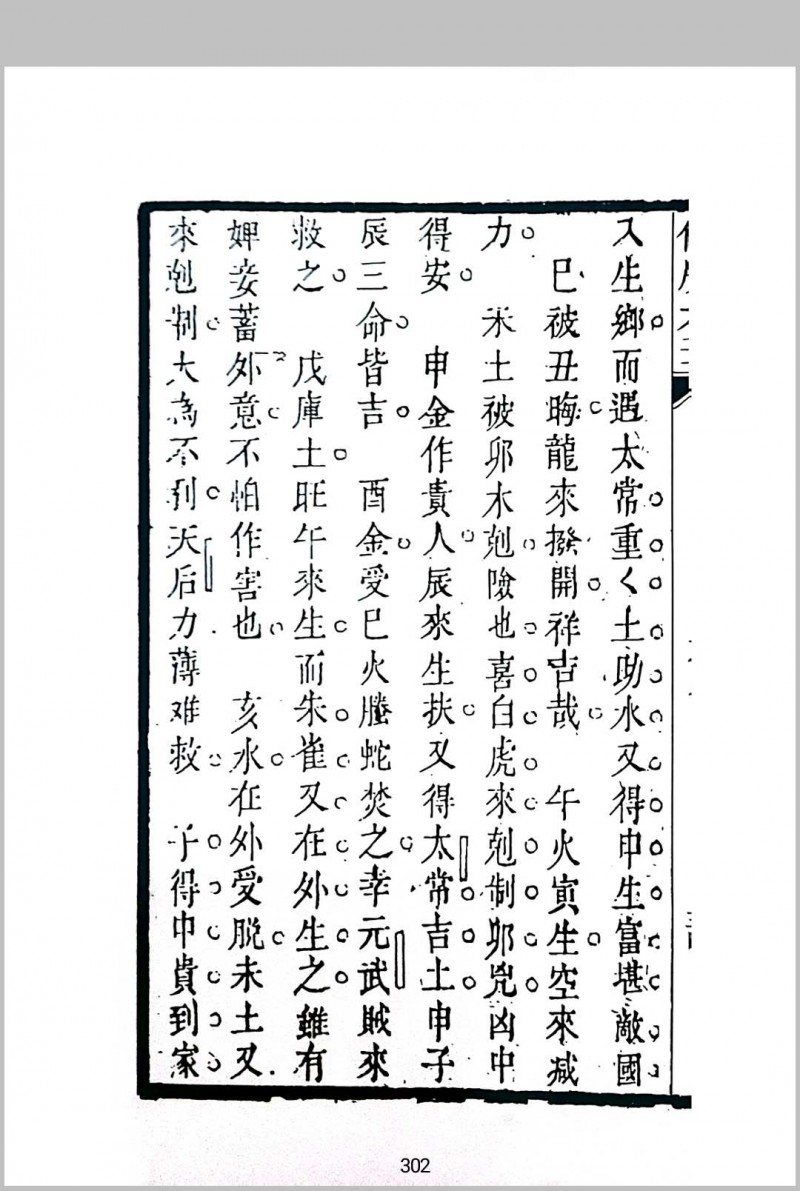 入生鄉而遇太常重〱土助水又得申生富堪敵國
巳被丑晦龍來撥開祥吉哉 午火寅生空來減
力 未土被卯木剋險也喜白虎來剋制卯兇凶中
得安 申金作貴人辰來生扶又得太常吉土申子
辰三命皆吉 酉金受巳火螣蛇焚之幸元武賊來
救之 戌庫土旺午來生而朱雀又在外生之雖有
婢妾蓄外意不怕作害也 亥水在外受脱未土又
來剋制大為不利天后力薄难救 子得申貴到家
302